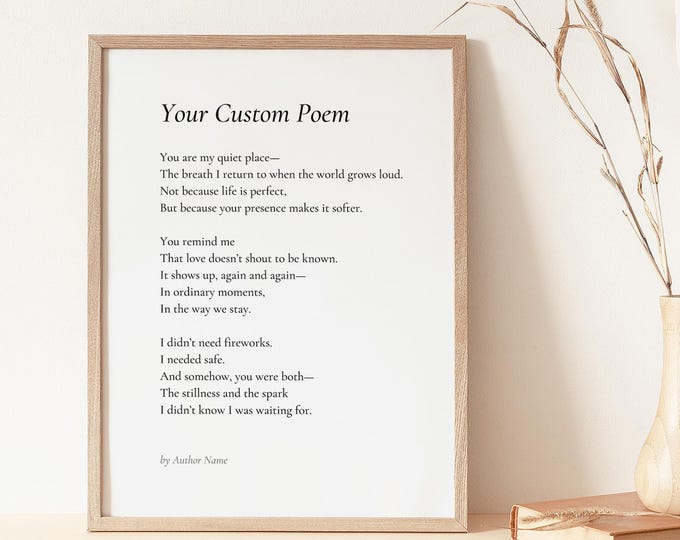 Your Custom Poem
You are my quiet place—
The breath I return to when the world grows loud.
Not because life is perfect,
But because your presence makes it softer.
You remind me
That love doesn't shout to be known.
It shows up, again and again—
In ordinary moments,
In the way we stay.
I didn't need fireworks.
I needed safe.
And somehow, you were both—
The stillness and the spark
I didn't know I was waiting for.
by Author Name